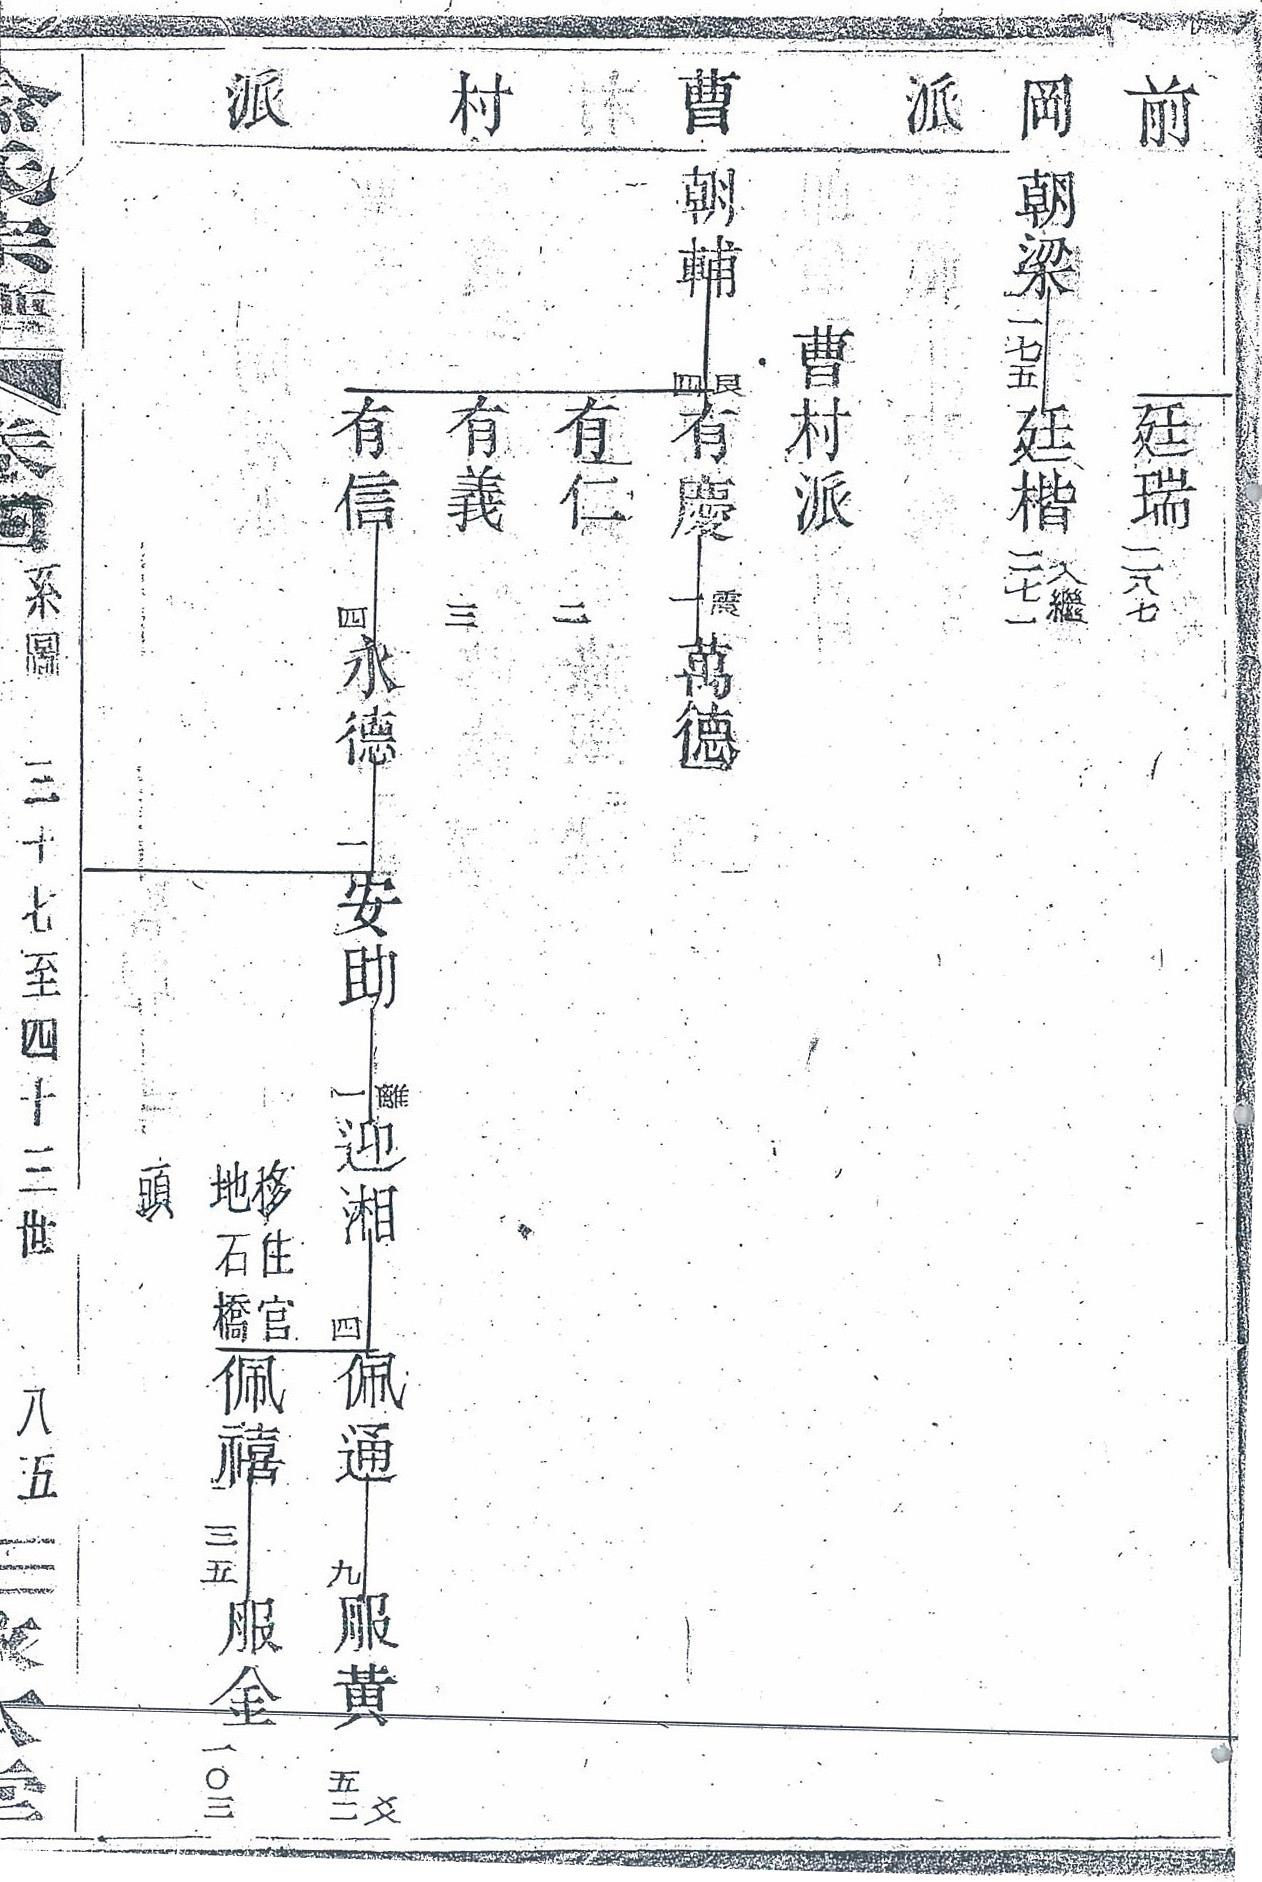 前岡派
曹村派
廷瑞
二八七
朝梁
一七五
廷楷
入繼
二七一
曹村派
朝輔
艮
四
有慶
震
一
萬德
有仁
二
有義
三
有信
四
永德
一
安助
離
一
迎湘
四
佩通
九
服黃
五二
移住官
地石橋
頭
佩禧
三五
服金
一〇三
系圖
三十七至四十三世
八五